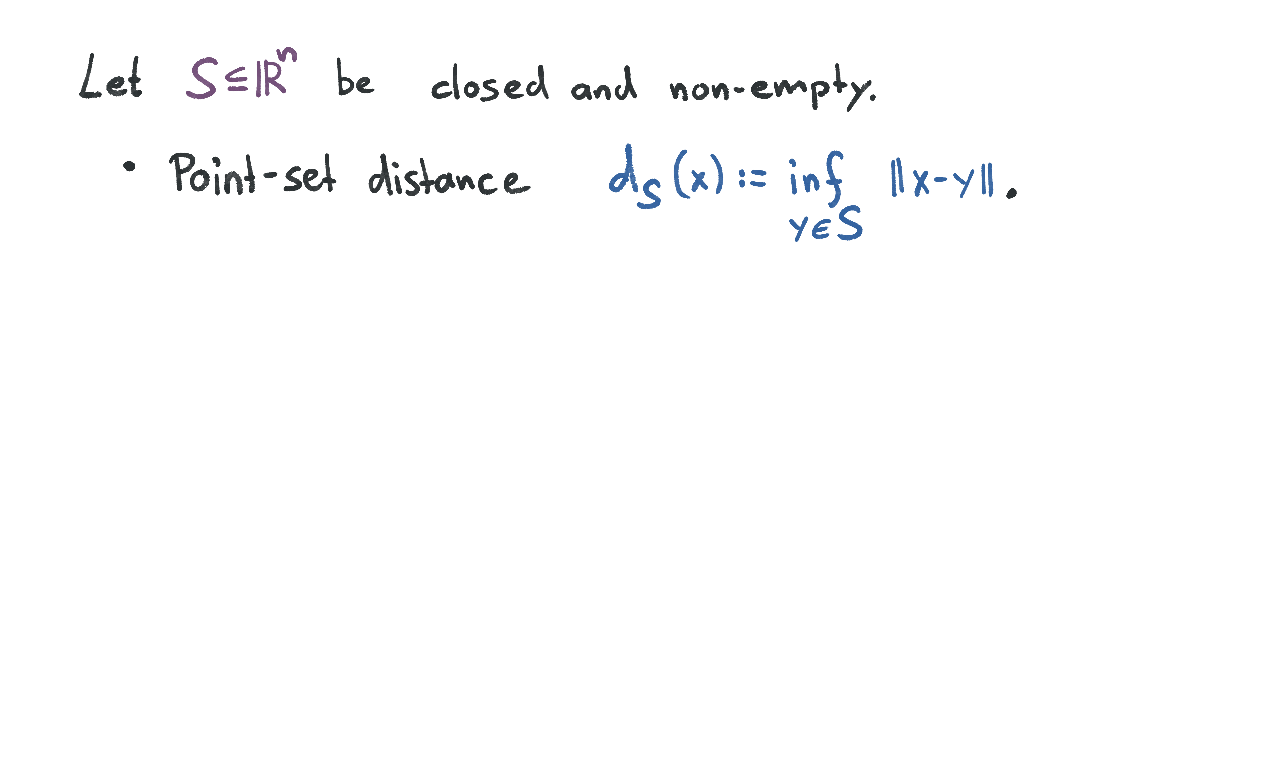 Let S ⊆ ℝⁿ be closed and non-empty.
• Point-set distance d_S(x) := inf_{y∈S} ‖x-y‖.